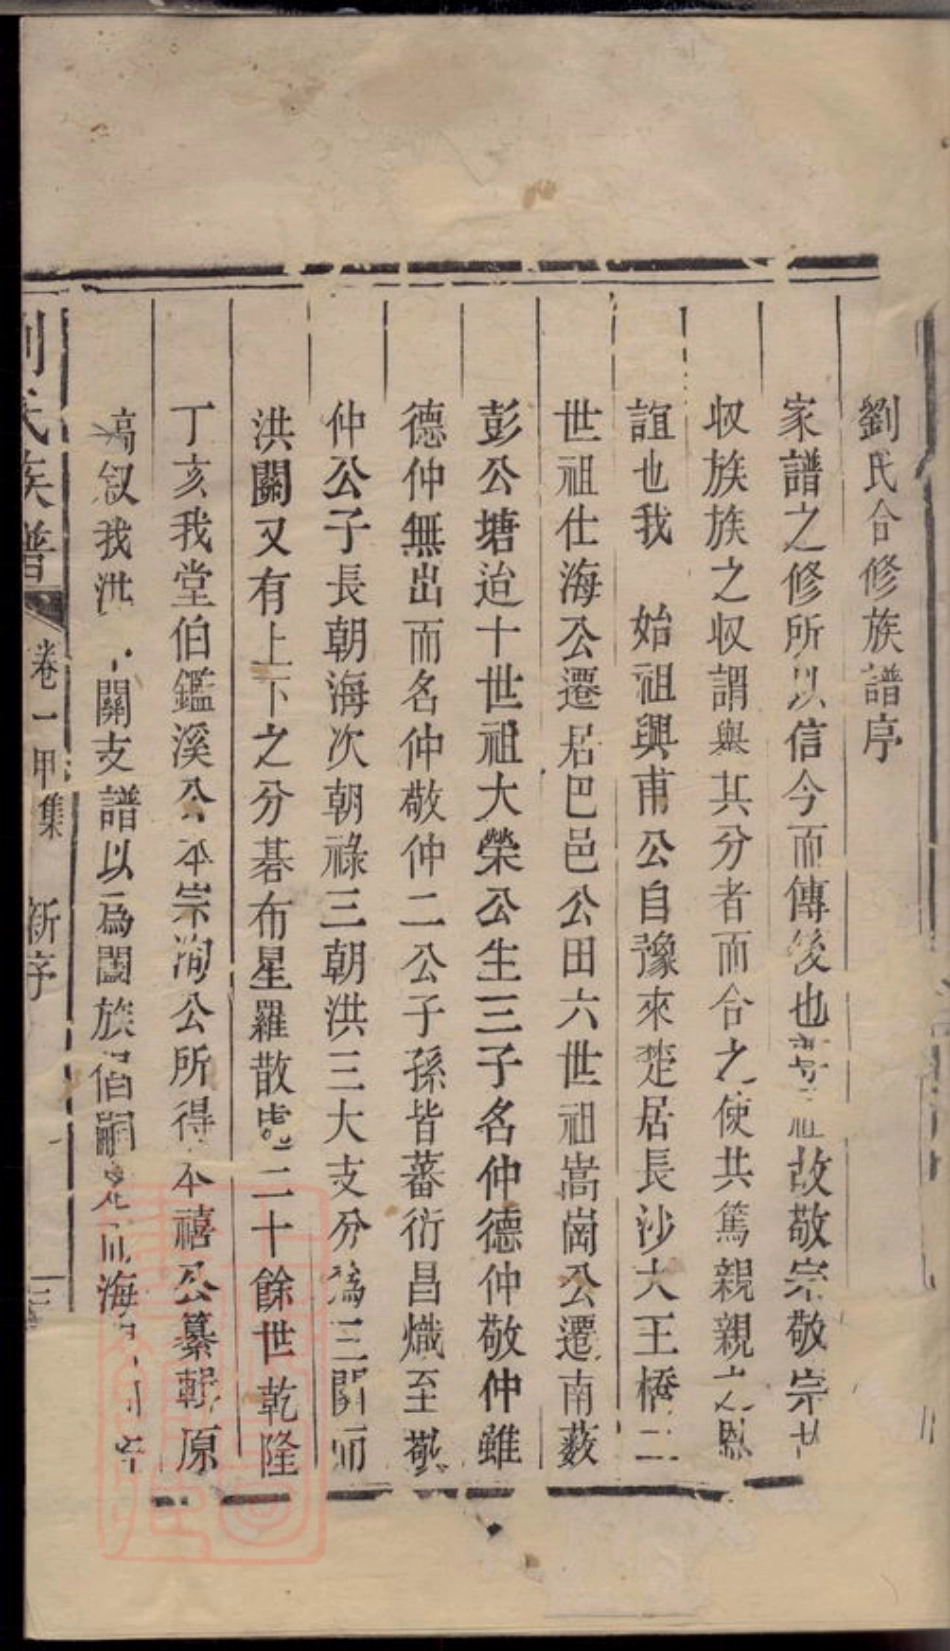 劉氏合修族譜序
家譜之修所以信今而傳後也故敬宗敬宗
収族族之収謂與其分者而合之使共篤親親之恩
誼也我　始祖興甫公自豫來楚居長沙大王橋二
世祖仕海公遷居巴邑公田六世祖嵩崗公遷南薮
彭公塘迨十世祖大榮公生三子名仲德仲敬仲雖
德仲無出而名仲敬仲二公子孫皆蕃衍昌熾至敬
仲公子長朝海次朝祿三朝洪三大支分爲三關而
洪關又有上下之分碁布星羅散處二十餘世乾隆
丁亥我堂伯鑑溪公本宗洵公所得本禧公纂輯原
稿敘我洪關支譜以爲闔族伯嗣海
劉氏族譜 卷一甲集 新序 三